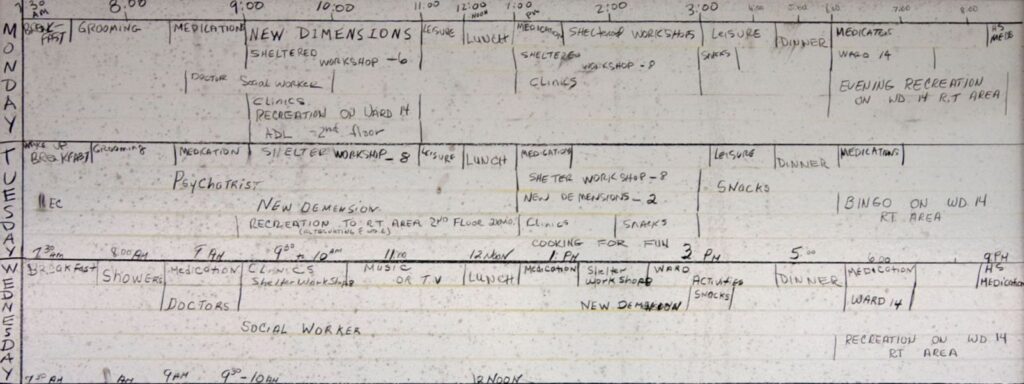 7:30 AM 8:00 9:00 10:00 11:00 12:00 NOON 1:00 PM 2:00 3:00 4:00 5:00 6:00 7:00 8:00
MONDAY
BREAK-FAST GROOMING MEDICATION NEW DIMENSIONS LEISURE LUNCH MEDICATION SHELTERED WORKSHOPS LEISURE DINNER MEDICATIONS HS MEDS
SHELTERED WORKSHOP-6 SHELTERED WORKSHOP-8 SNACKS WARD 14
DOCTOR SOCIAL WORKER CLINICS EVENING RECREATION
ON WD. 14 R.T AREA
CLINICS
RECREATION ON WARD 14
ADL - 2nd floor
TUESDAY
WAKE UP
BREAKFAST GROOMING MEDICATION SHELTER WORKSHOP-8 LEISURE LUNCH MEDICATION LEISURE DINNER MEDICATIONS
PSYCHATRIST SHETER WORKSHOP-8 SNACKS
EC NEW DEMENSION NEW DEMENSIONS-2 BINGO ON WD 14
RT AREA
RECREATION TO R.T AREA 2ND FLOOR CLINICS SNACKS
COOKING FOR FUN
7:30 AM 8:00 AM 9 AM 9:30 to 10 AM 11:00 12 NOON 1 PM 3 PM 5:00 6:00 9 PM
WEDNESDAY
BREAKFAST SHOWERS MEDICATION CLINICS MUSIC OR T.V LUNCH MEDICATION SHELTER WORKSHOPS WARD ACTIVITES DINNER MEDICATION HS MEDICATION
SHELTER WORKSHOPS SNACKS
DOCTORS NEW DEMENSION WARD 14
SOCIAL WORKER
RECREATION ON WD 14
RT AREA
7:30 AM AM 9 AM 9:30-10 AM 12 NOON